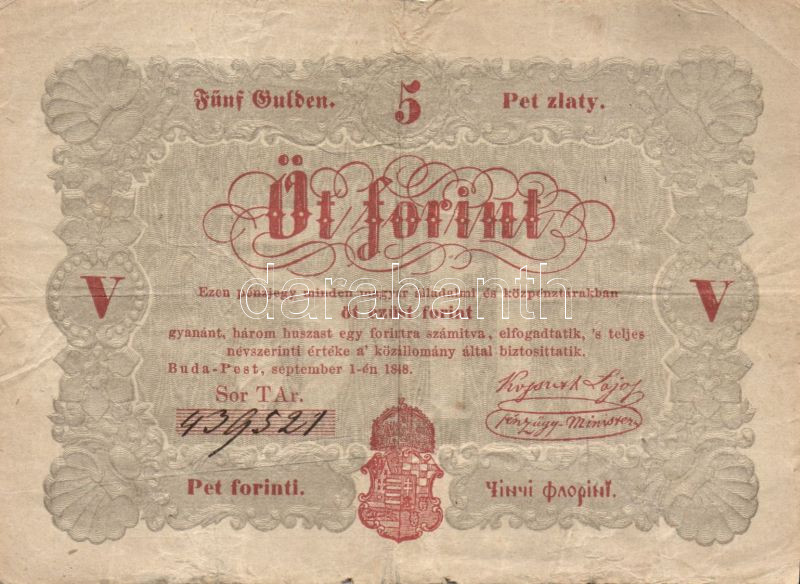 Fünf Gulden. 5 Pet zlaty.
Öt forint
V V
Ezen pénzjegy minden magyar álladalmi és közpénztárakban
öt ezüst forint
gyanánt, három huszast egy forintra számitva, elfogadtatik, 's teljes
névszerinti értéke a' közállomány által biztosittatik.
Buda-Pest, september 1-én 1848.
Sor TAr.
439521
Kossuth Lajos
pénzügy-Minister
Pet forinti. Чінчі флорінї.
darabanth